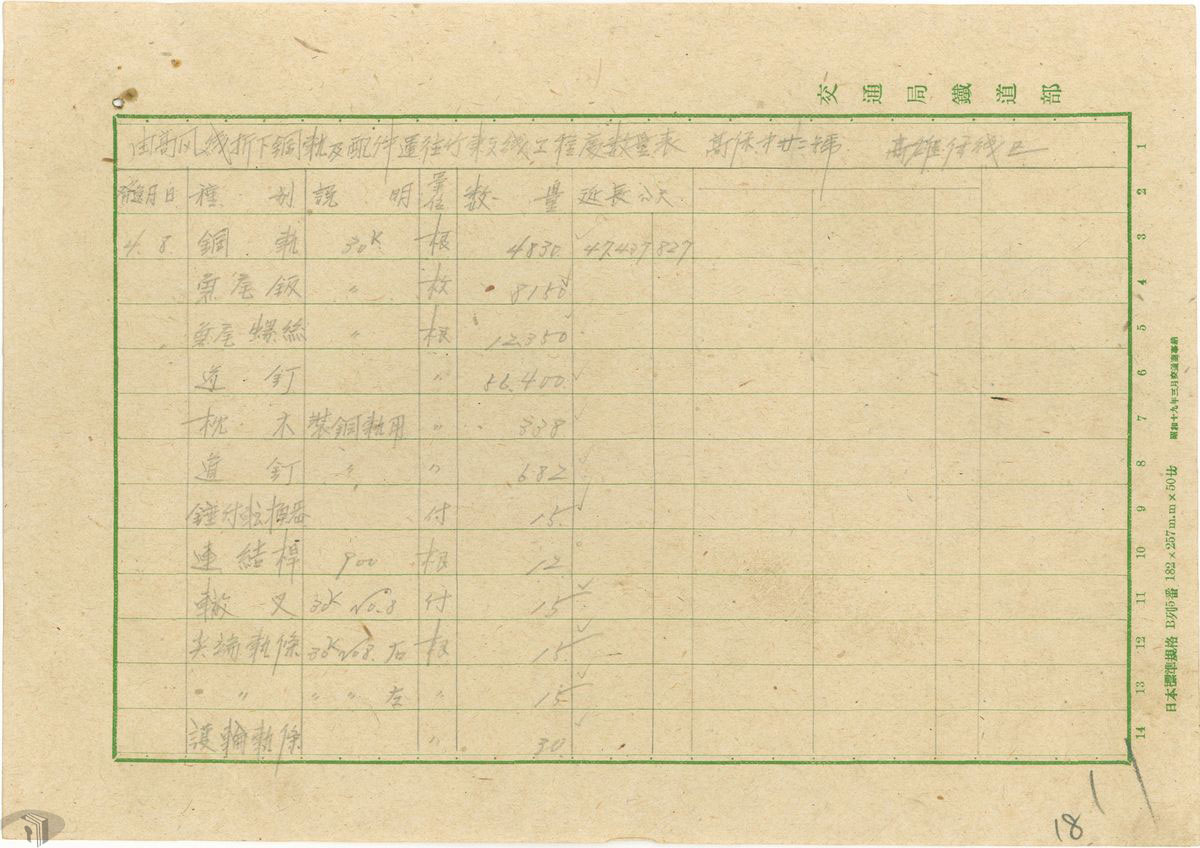 交通局鐵道部
由高风线折下鋼軌及配件運往竹東线工程處数量表 高保才廿二號 高雄保线区
月日 種別 説明 單位 数量 延長公尺
4. 8. 鋼軌 30K 根 4830 47.437 827
魚尾鈑 〃 枚 8150
魚尾螺絲 〃 根 12.350
道釘 〃 56.400
枕木 裝鋼軌用 〃 338
道釘 〃 〃 682
錘付轉換器 付 15
連結桿 900 根 12
轍叉 30K No.8 付 15
尖端軌條 30K No8. 右 根 15
〃 〃 〃 〃 左 〃 15
護輪軌條 〃 30
1 2 3 4 5 6 7 8 9 10 11 12 13 14
日本標準規格 B列5番 182×257m.m×50
昭和十九年三月
18